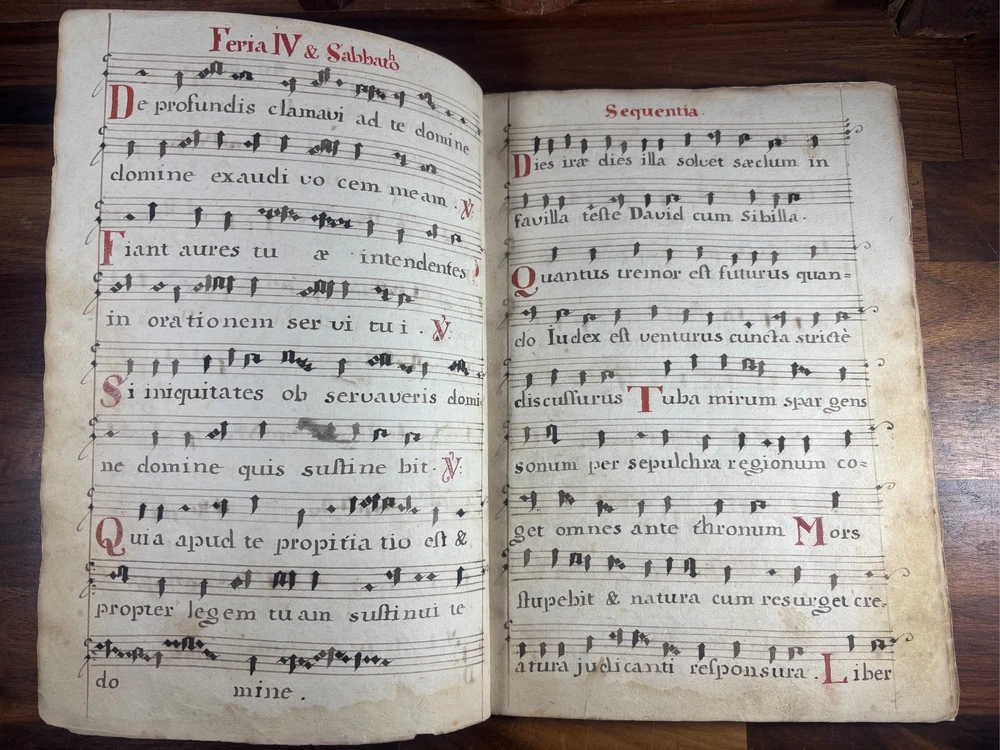 Feria IV & Sabbato
De profundis clamavi ad te domine
domine exaudi vo cem meam. ℣.
Fiant aures tu æ intendentes
in orationem ser vi tu i. ℣:
Si iniquitates ob servaveris domi
ne domine quis sustine bit. ℣:
Quia apud te propitia tio est &
propter legem tuam sustinui te
do mine.
Sequentia.
Dies iræ dies illa solvet sæclum in
favilla teste David cum Sibilla.
Quantus tremor est futurus quan=
do Iudex est venturus cuncta strictè
discussurus Tuba mirum spar gens
sonum per sepulchra regionum co=
get omnes ante thronum Mors
stupebit & natura cum resurget cre=
atura judicanti responsura. Liber